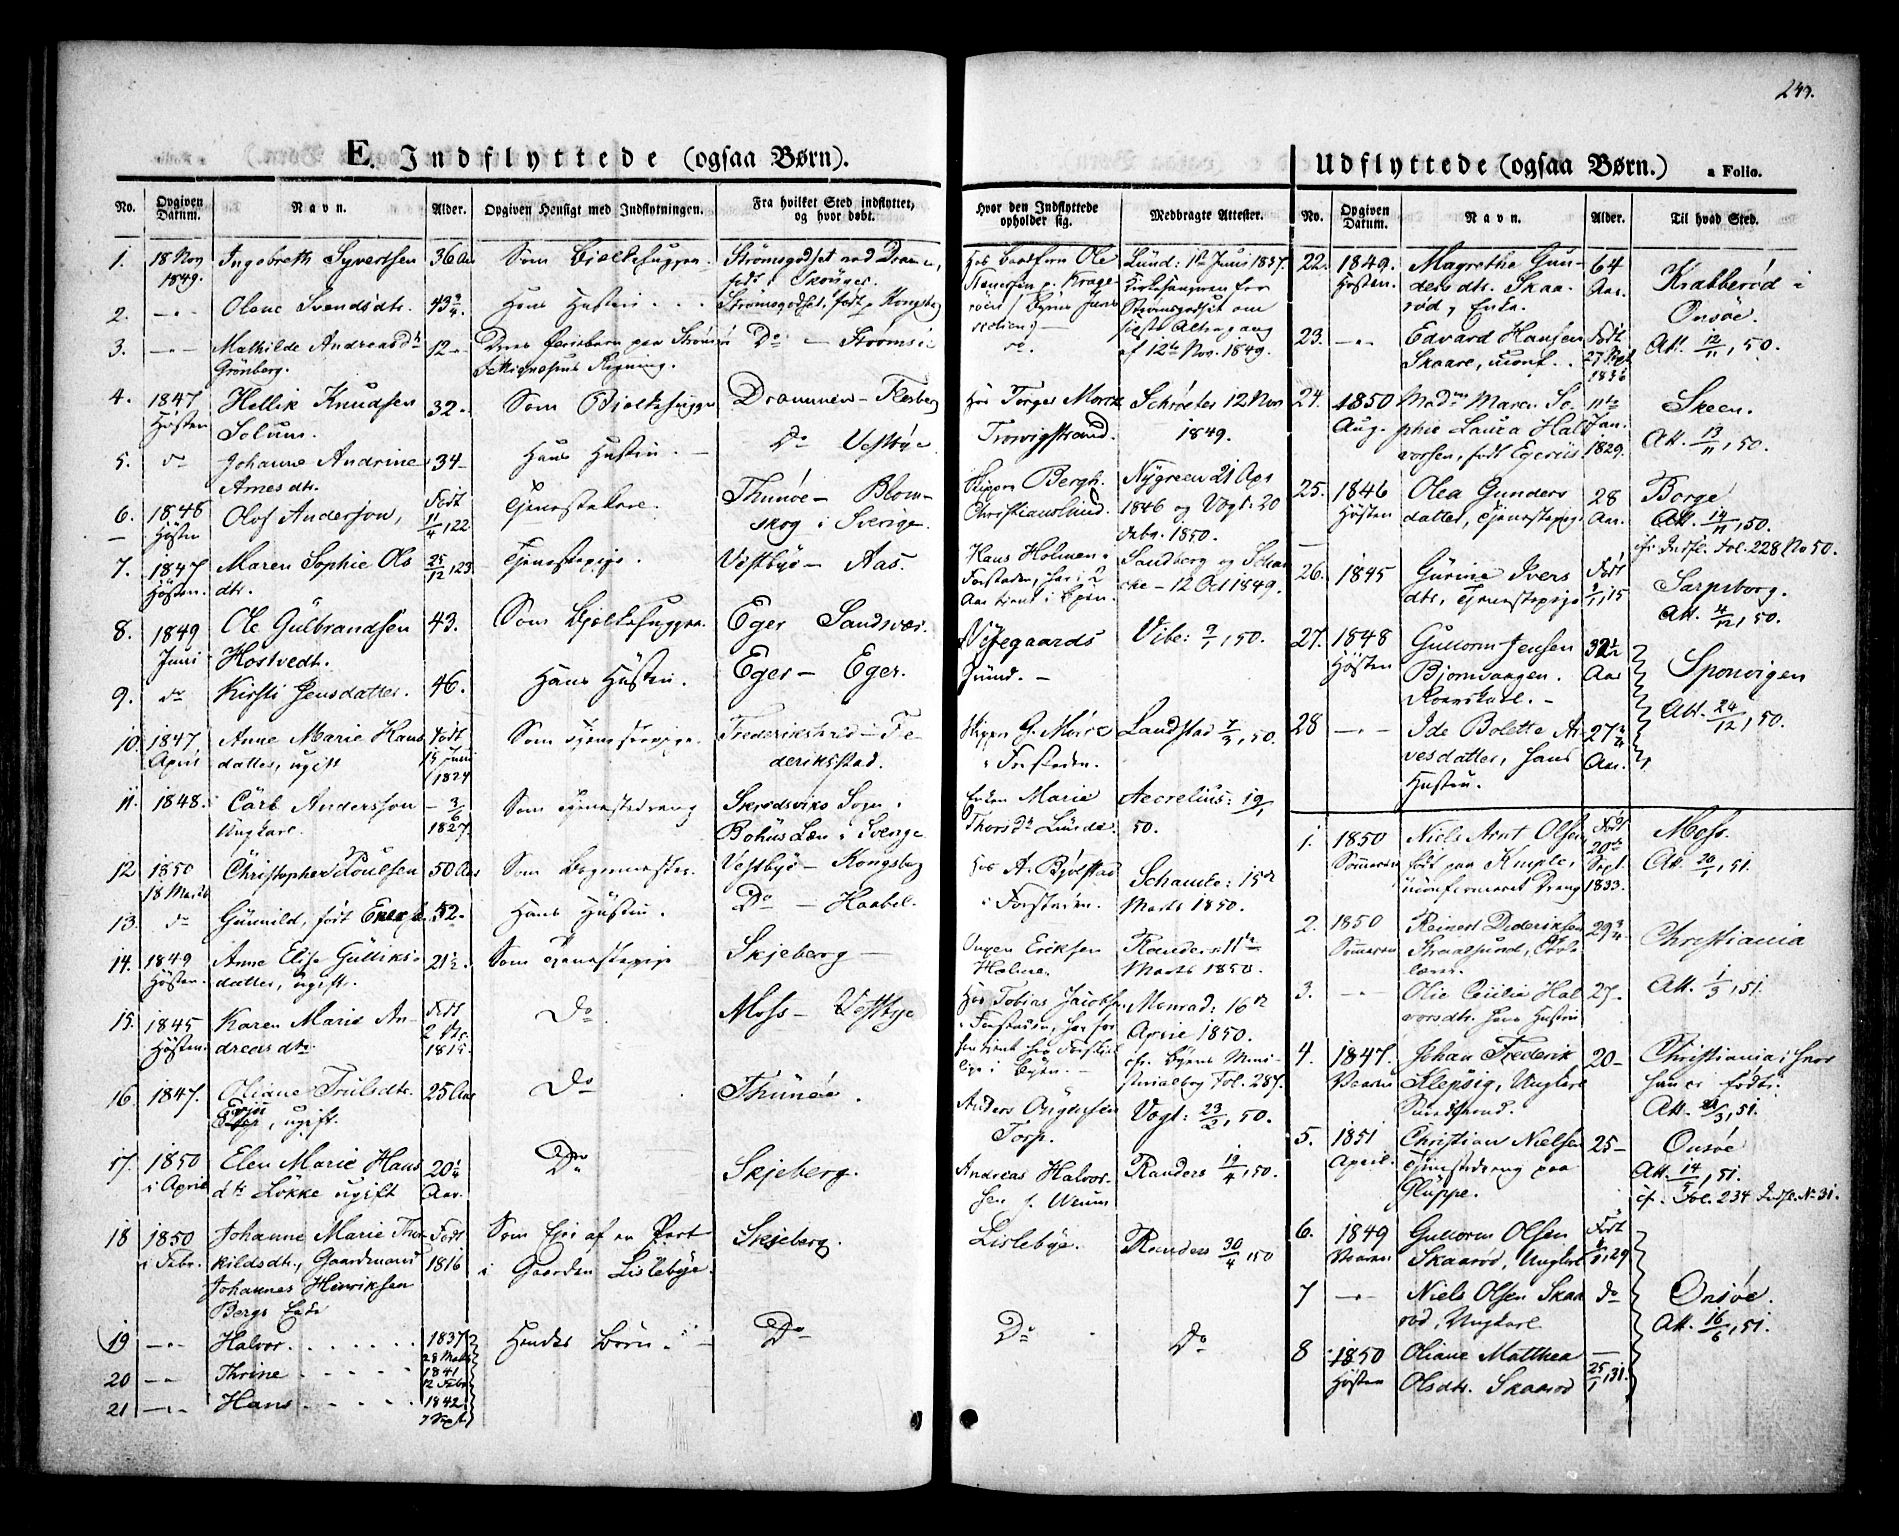 E. Indflyttede (ogsaa Børn).
No.
Opgiven Datum.
Navn.
Alder.
Opgiven Hensigt med Indflytningen.
Fra hvilket Sted indflyttet, og hvor døbt.
1. 18 Nov 1849. Ingebreth Syvertsen 36 Aar Som Bjelkehugger. Strømsgodset ved Drammen,
2. Olene Svendsdtr. 43 3/4. Hans Hustru. Strømsgodset, født p. Kongsberg
3. Mathilde Andreasdtr Grönberg. 12 Do
4. 1847 Høsten Hellik Knudsen Solum. 32. Som Bjelkehugger Drammen - Flesberg
5. do Johanne Andrine Arnesdtr. 34 Hans Hustru. Do Vestbye
6. 1848 Høsten Olof Andersson, Født 11/4, 22 Tjenestekarl. Thunöe - Blomskog i Sverige.
7. 1847 Høsten. Maren Sophie Olsdtr. 25/12, 23. Tjenestepige. Vestbye - Aas.
8. 1849 Juni Ole Gulbrandsen Hostvedt. 43. Som Bjelkehugger. Eger Sandsvær.
9. do Kirsti Jensdatter. 46. Hans Hustru. Eger - Eger.
10. 1847 April Anne Marie Hansdatter, ugift Født 15 Juni 1824 Som Tjenestepige. Frederikstad - Frederiksstad.
11. 1848. Carl Andersson Ungkarl. 3/6 1827. Som Tjenestedreng Skredsviks Sogn i Bohus Læn i Sverige
12 1850 18 Marts Christopher Poulsen 50 Aar Som Bogenmester. Vestbye - Kongsberg
13. do Gunnild, født 52. Hans Hustru. Do - Haabel.
14. 1849 Høsten. Anne Elise Gulliksdatter, ugift. 21 1/2. Som Tjenestepige Skjeberg -
15. 1845 Høsten. Karen Marie Andreasdtr Født 1815. Do Moss - Vestbye
16. 1847. Oliane Trulsdtr. ugift. 25 Aar Do Thunöe.
17. 1850 i April Elen Marie Hansdtr Løkke ugift 20 1/4 Aar. Do Skjeberg.
18 1850 i Febr. Johanne Marie Thorkildsdtr., Gaardmand Johannes Hinriksen Bergs Enke Født 1816 Som Ejer af en Part i Gaarden Lislebye. Skjeberg.
19 Halvor. 1837 28 Marts Hendes Børn. Do
20 Thrine 1841 12 Febr.
21 Hans 1842. 7 Sept.
Hvor den Indflyttede opholder sig.
Medbragte Attester.
Hos Ole
Lund: 1ste Juni 1837.
af 12te Nov. 1849.
Hos Torger Moræ Trosvigstrand.
Schrøeter 12 Nov 1849.
Skipper Bergh. Christianslund.
Nygreen 21 Apr 1846 og Vogt: 20 Febr. 1850.
Hans Holmen i Forstaden, har i 2 Aar tjent i Byen.
Sandberg og Schancke - 12 Oct 1849.
Vibe: 9/1, 50.
Grund.
Skipper G. Moræ i Forstaden.
Landstad 7/3, 50.
Enken Marie Thorsdtr Lunde.
Aecrelius: 19/1 50.
Hos A. Bjølstad i Forstaden.
Schancke: 15de Marts 1850.
Eriksen Holme.
Rande 11te Marts 1850.
Hos Tobias Jacobsen i Forstaden,
Monrad: 16de April 1850. cfr. Byens Ministerialbog Fol. 287.
Anders Torp.
Vogt: 23/2, 50.
Andreas Halvorsen p. Weum
Randers 19/4, 50.
Lislebye.
Randers 30/4, 50
Do
Do
243.
Udflyttede (ogsaa Børn.)
a Folio.
No.
Opgiven Datum.
Navn.
Alder.
Til hvad Sted.
22. 1849. Høsten. Magrethe Gundersdtr. Skaarød, Enke. 64 Aar. Krabberød i Onsøe.
23. Edvard Hansen Skaare, uconf. Født 27 Sept 1836 Att. 12/11, 50.
24. 1850 Aug. Madme Maren Sophie Laura Halvorsen, født Egerüs 11te Jan. 1829. Skeen. Att. 13/11, 50.
25. 1846 Høsten Olea Gundersdatter, Tjenestepige 28 Aar. Borge Att. 14/11, 50. cfr. Indfl. Fol. 228 No 50.
26. 1845 Gurine Iversdtr, Tjenestepige Født Sarpsborg. Att. 4/12, 50.
27. 1848 Høsten Guttorm Jensen Bjørnvaagen. 32 1/2 Aar Sponvigen Att. 24/12, 50.
28 Ide Bolette Arvesdatter, hans Hustru. 27 3/4 Aar.
1. 1850 Sommeren Niels Arnt Olsen født paa uconfirmeret Dreng Født 20de Sept. 1833. Moss. Att. 20/1, 51.
2. 1850 Sommeren Reinert Dideriksen 29 3/4 Christiania
3. Olie Cecilie Halvorsdtr. hans Hustru 27. Att. 1/3, 51.
4. 1847. Vaaren Johan Frederik Klepsig, Ungkarl 20 Christiania, hvor han er født. Att. 3, 51.
5. 1851 April. Christian Nielsen Tjenestedreng paa Gluppe. 25 Onsøe Att. 14/5, 51. cf. Fol. 234 Indfl. No 31.
6. 1849 Vaaren Guttorm Olsen Skaarød, Ungkarl Født 29
7 Niels Olsen Skaarød, Ungkarl do Onsøe. Att. 16/6, 51.
8 1850 Høsten Oliane Matthea Olsdtr. Skaarød 25/1, 31.